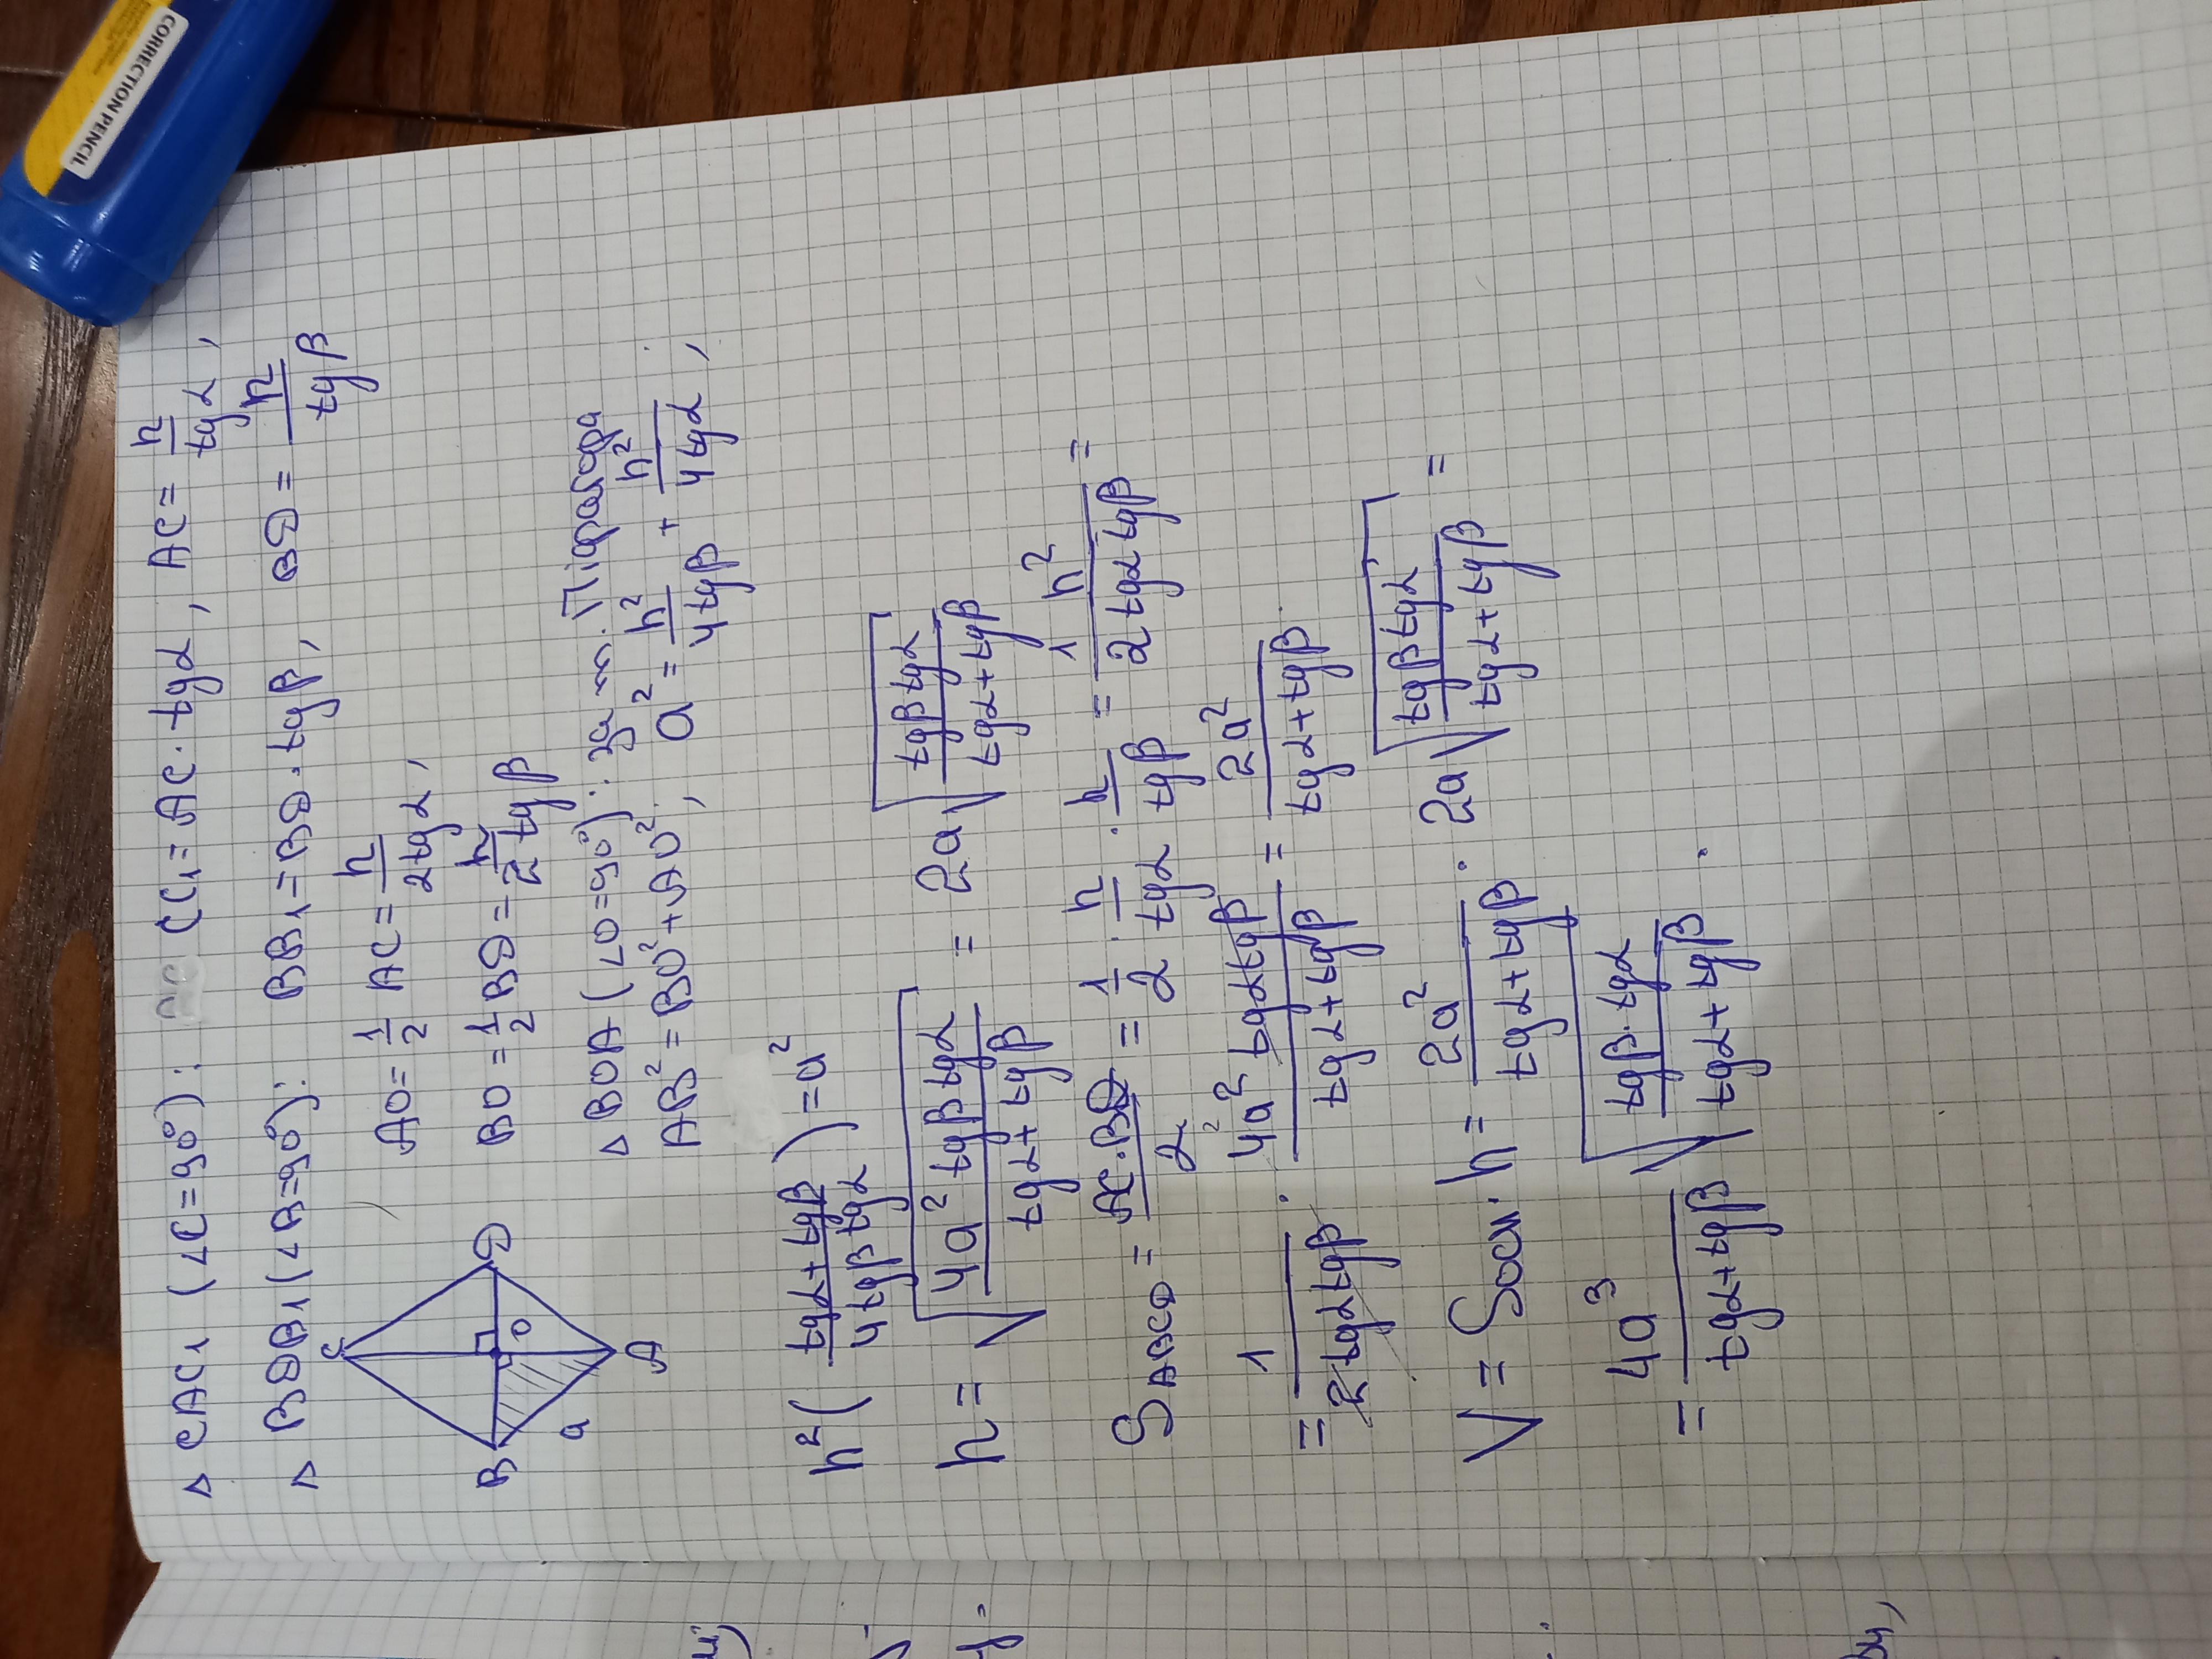 CORRECTION PENCIL
△ CAC₁ (∠C=90°): CC₁ = AC · tgα, AC = h/tgα,
△ BDB₁ (∠B=90°): BB₁ = BD · tgβ, BD = h/tgβ
AO = 1/2 AC = h/2tgα,
BO = 1/2 BD = h/2tgβ
△ BOA (∠O=90°): за т. Піфагора
AB² = BO² + AO², a² = h²/4tgβ + h²/4tgα,
C
B
D
O
A
a
h² (tgα+tgβ/4tgβtgα) = a²
h = √(4a²tgβtgα/tgα+tgβ) = 2a√(tgβtgα/tgα+tgβ)
S ABCD = AC·BD/2 = 1/2 · h/tgα · h/tgβ = 1 h²/2tgαtgβ =
= 1/2tgαtgβ · 4a² ² tgαtgβ/tgα+tgβ = 2a²/tgα+tgβ
V = Sосн · h = 2a²/tgα+tgβ · 2a√(tgβtgα/tgα+tgβ) =
= 4a³/tgα+tgβ √(tgβ·tgα/tgα+tgβ) .